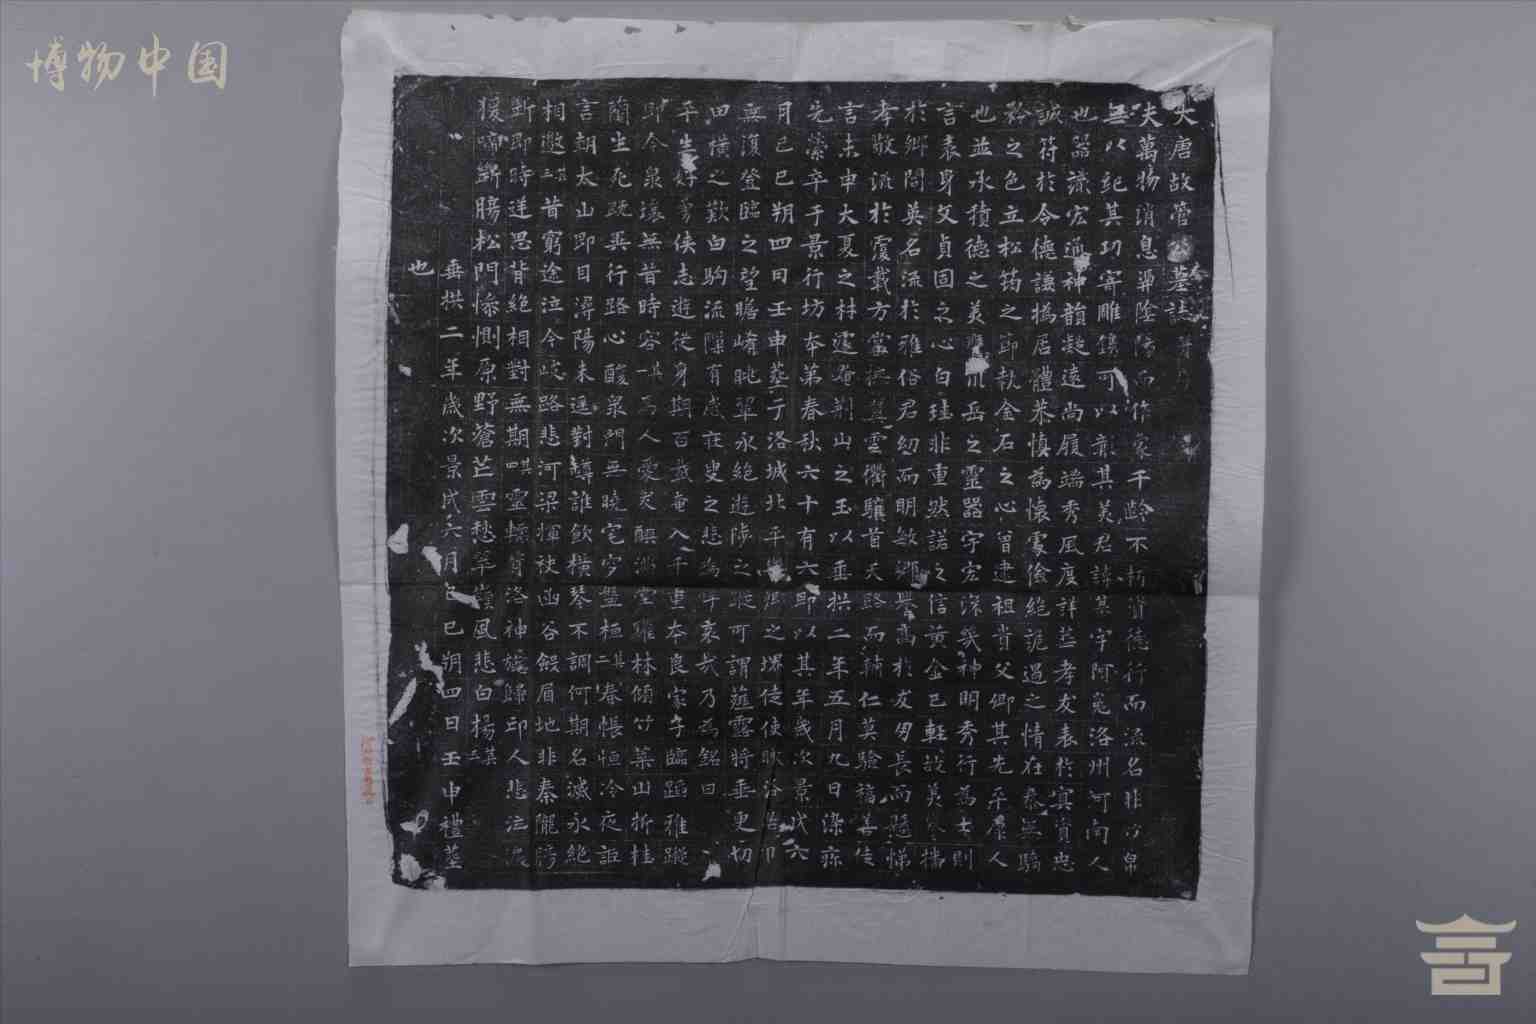 博物中国
大唐故管君墓誌
夫萬物消息稟陰陽而作象千齡不朽資德行而流名非以帛
無以紀其功寄雕鐫可以彰其美君諱其字阿兔洛州河南人
也器識宏邈神韻凝遠尚履端秀風度詳孝友表於實資忠
誠符於令德謙撝居體恭慎為懷處儉絕詭過之情在泰無驕
矜之色立松筠之節執金石之心曾建祖貴父卿其先平原人
也並承積德之美川岳之靈器宇宏深幾神明秀行為士則
言表身文貞固之心白珪非重然諾之信黃金已輕故美
於鄉閭英名流於雅俗君幼而明敏鄉譽高於友朋長而懸悌
孝敬流於覆載方當雲衢驤首天路而輔仁莫驗福善徒
言未申大夏之材遽碎荆山之玉以垂拱二年五月九日染疾
先縈卒于景行坊本第春秋六十有六即以其年歲次景戌六
月己巳朔四日壬申葬于洛城北平之塋徒使
無復登臨之望瞻崤眺鞏永絕遊陟之蹤可謂薤露將垂更切
田橫之歎白駒流隙有感莊叟之悲嗚呼哀哉乃為銘曰
平生好勇俠志遊從身期百歲奄入千重本良家子臨蹈雅蹤
即今泉壤無昔時容其一為人愛友醼滿堂雖林傾竹葉山折桂
蘭生死既異行路心酸泉門無曉宅穸壟極其二春帳恒冷夜詎
言朝太山即目潯陽未遥對罇誰飲橫琴不調何期名滅永絕
相邀其三昔窮途泣今岐路悲河梁揮袂函谷飲眉地非秦隴腸
斷即時送思背絕相對無期其四靈轜背洛神歸邙人悲泣淚
猨啼斷腸松門慘惻原野蒼芒雲愁翠嶺風悲白楊其五
垂拱二年歲次景戌六月己巳朔四日壬申禮葬
也